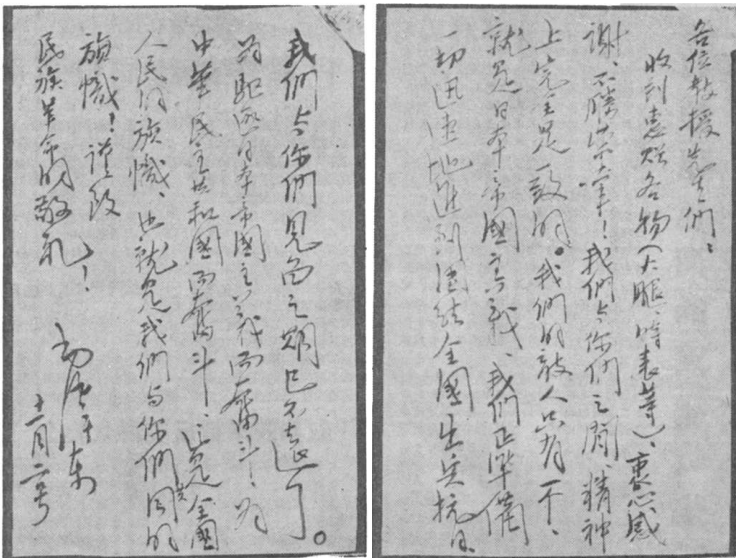 各位教授先生們：
收到惠贈各物（火腿、時表等），衷心感
謝，不勝榮幸！我們与你們之間，精神
上完全是一致的。我們的敵人只有一个，
就是日本帝國主義，我們正準備
一切迅速地進到團結全國出兵抗日，
我們与你們見面之期已不遠了。
為驅逐日本帝國主義而奮斗，為
中華民主共和國而奮斗，這是全國
人民的旗幟，也就是我們与你們共同的
旗幟！謹致
民族革命的敬礼！
毛澤東
十二月二号